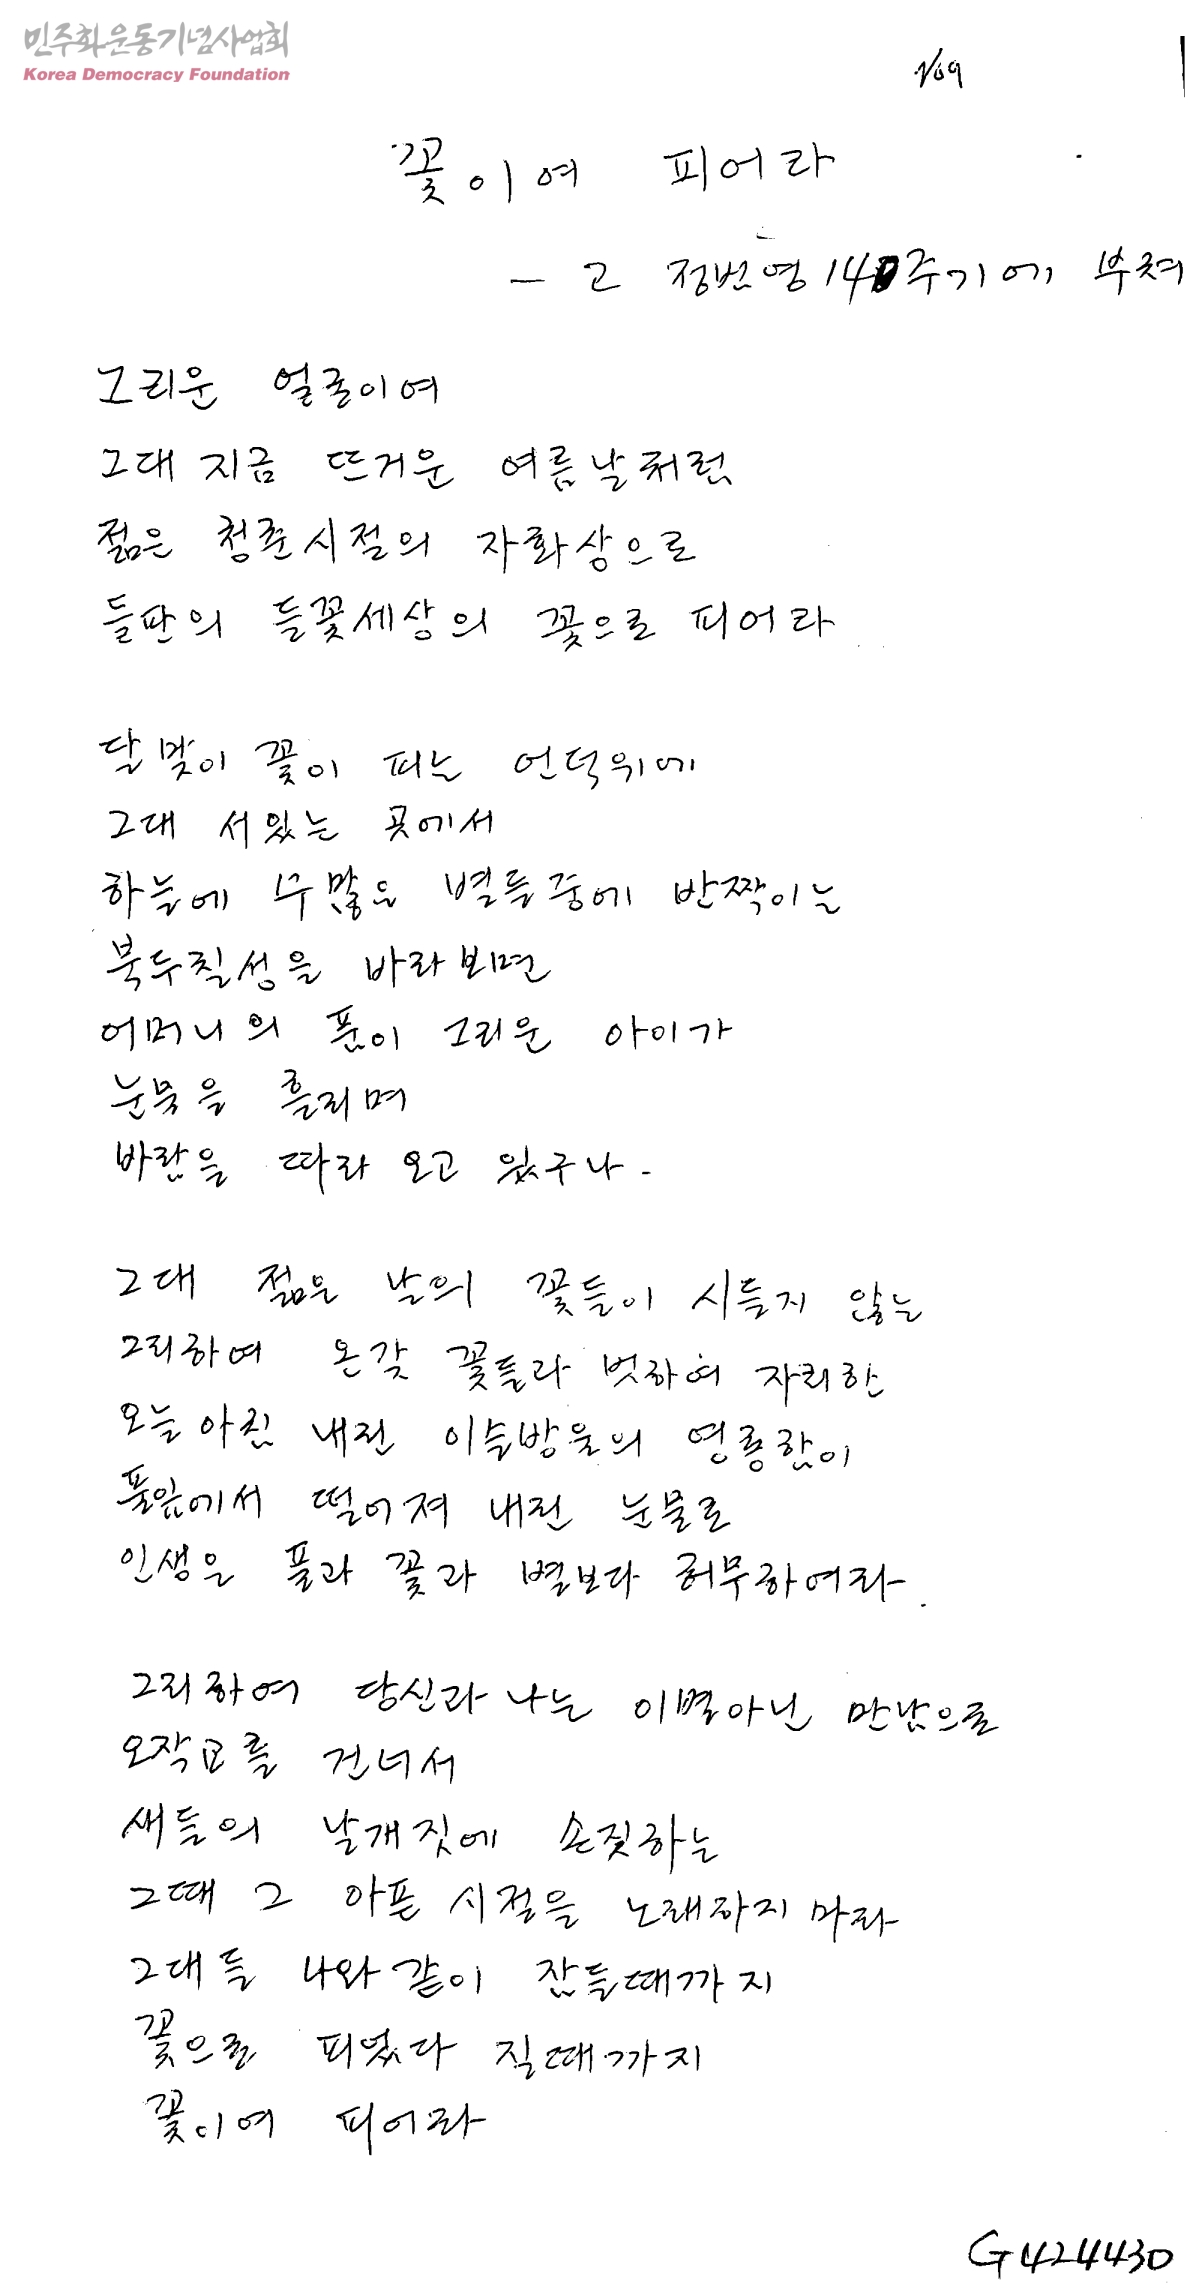 민주화운동기념사업회
Korea Democracy Foundation
1/09
꽃이여 피어라
- 고 정법영 14주기에 부쳐
그리운 얼굴이여
그대 지금 뜨거운 여름날처럼
젊은 청춘시절의 자화상으로
들판의 들꽃세상의 꽃으로 피어라
달맞이 꽃이 피는 언덕위에
그대 서있는 곳에서
하늘에 무수많은 별들중에 반짝이는
북두칠성을 바라보면
어머니의 품이 그리운 아이가
눈물을 흘리며
바람을 따라 오고 있구나.
그대 젊은 날의 꽃들이 시들지 않는
그리하여 온갖 꽃들과 벗하여 자리한
오늘아침 내린 이슬방울의 영롱함이
풀잎에서 떨어져 내린 눈물로
인생은 풀과 꽃과 별보다 허무하여라.
그리하여 당신과 나는 이별아닌 만남으로
오작교를 건너서
새들의 날개짓에 손짓하는
그때 그 아픈 시절을 노래하지 마라
그대들 나와같이 잠들때까지
꽃으로 피었다 질때까지
꽃이여 피어라
G424430